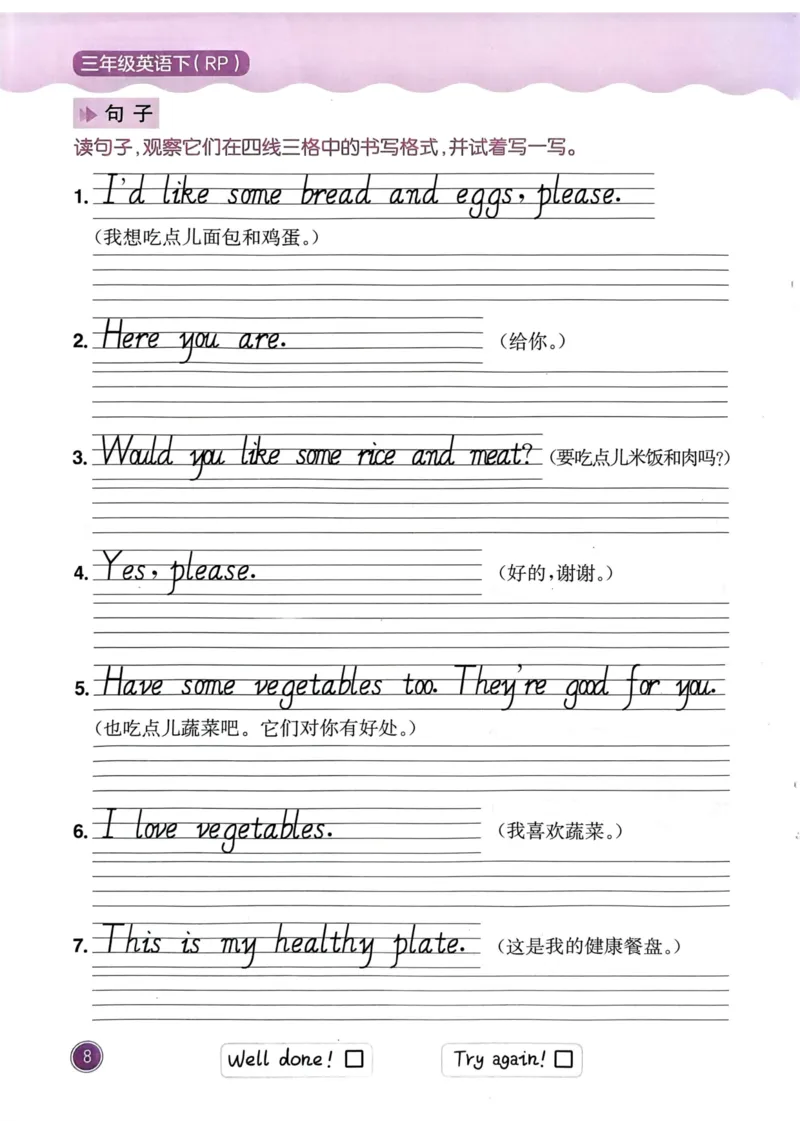 三年级英语下(RP)
句子
读句子,观察它们在四线三格中的书写格式,并试着写一写。
1. I'd like some bread and eggs, please.
(我想吃点儿面包和鸡蛋。)
2. Here you are. (给你。)
3. Would you like some rice and meat? (要吃点儿米饭和肉吗?)
4. Yes, please. (好的,谢谢。)
5. Have some vegetables too. They're good for you.
(也吃点儿蔬菜吧。它们对你有好处。)
6. I love vegetables. (我喜欢蔬菜。)
7. This is my healthy plate. (这是我的健康餐盘。)
8 Well done! □ Try again! □